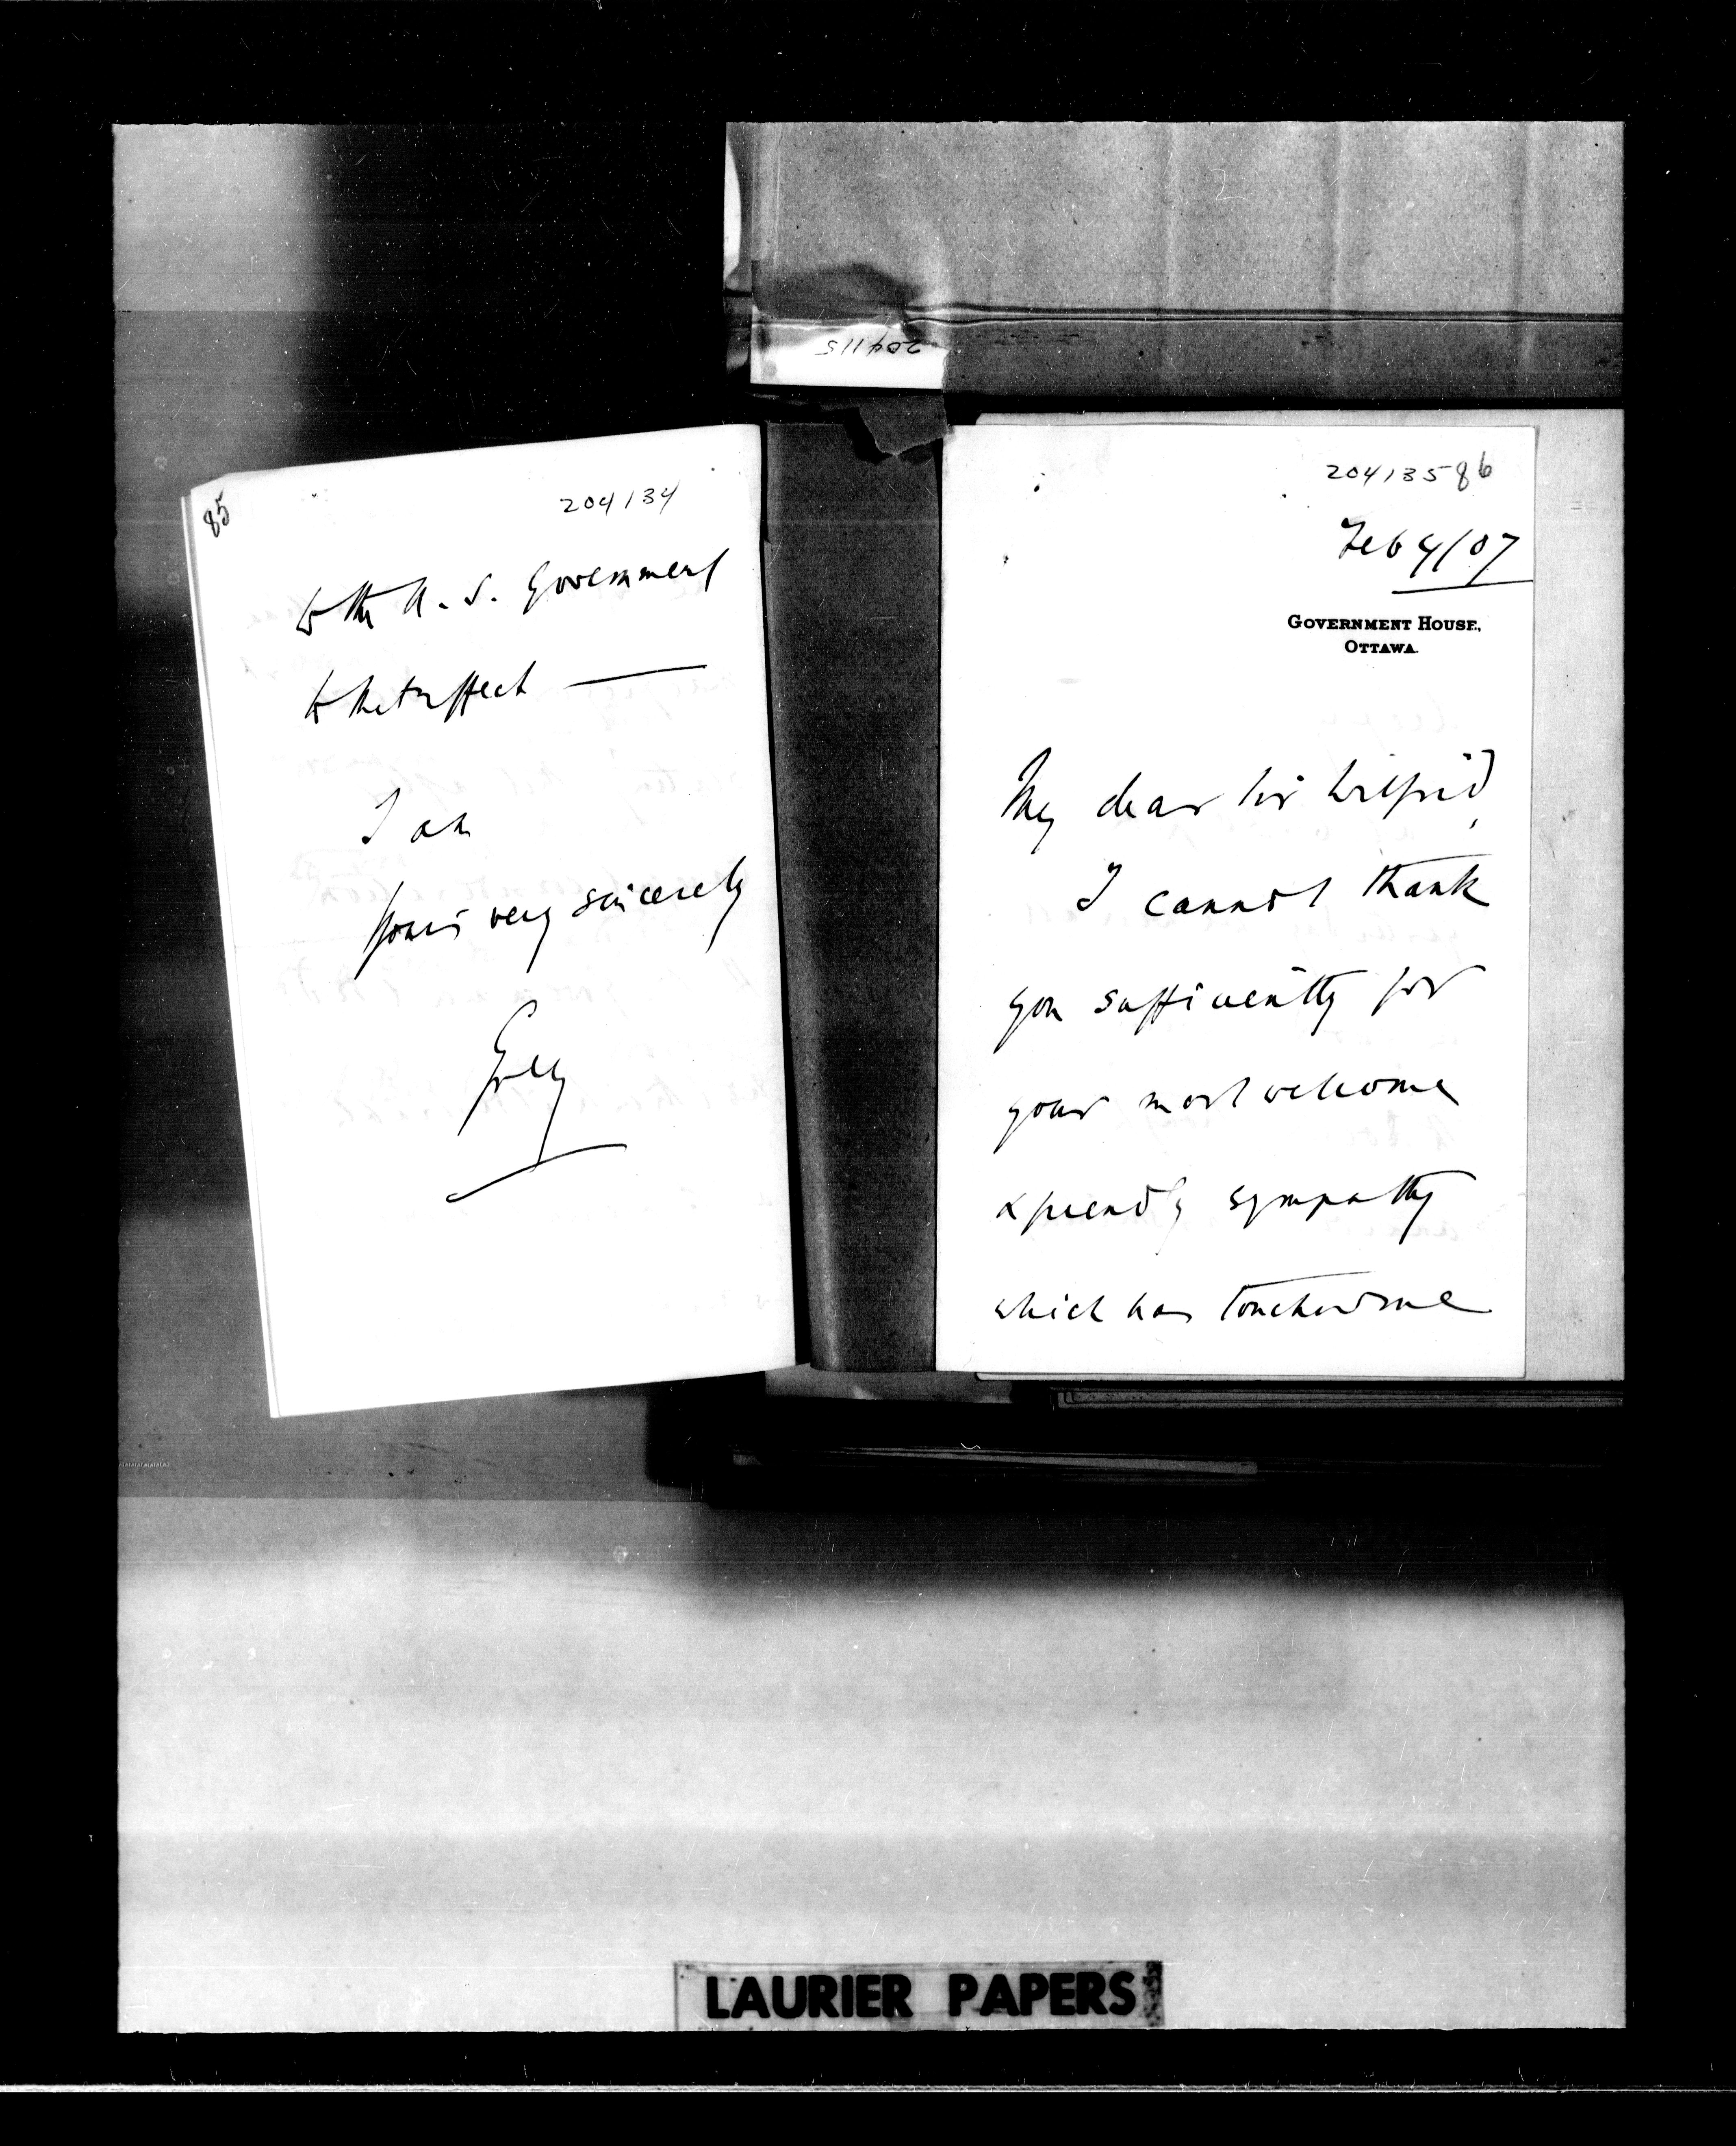 204115
85
204134
to the U.S. Government
to that effect —
I am
Yours very sincerely
Grey
204135 86
Feb 4/07
GOVERNMENT HOUSE,
OTTAWA.
My dear Sir Wilfrid,
I cannot thank
you sufficiently for
your most welcome
& friendly sympathy
which has touched me
LAURIER PAPERS